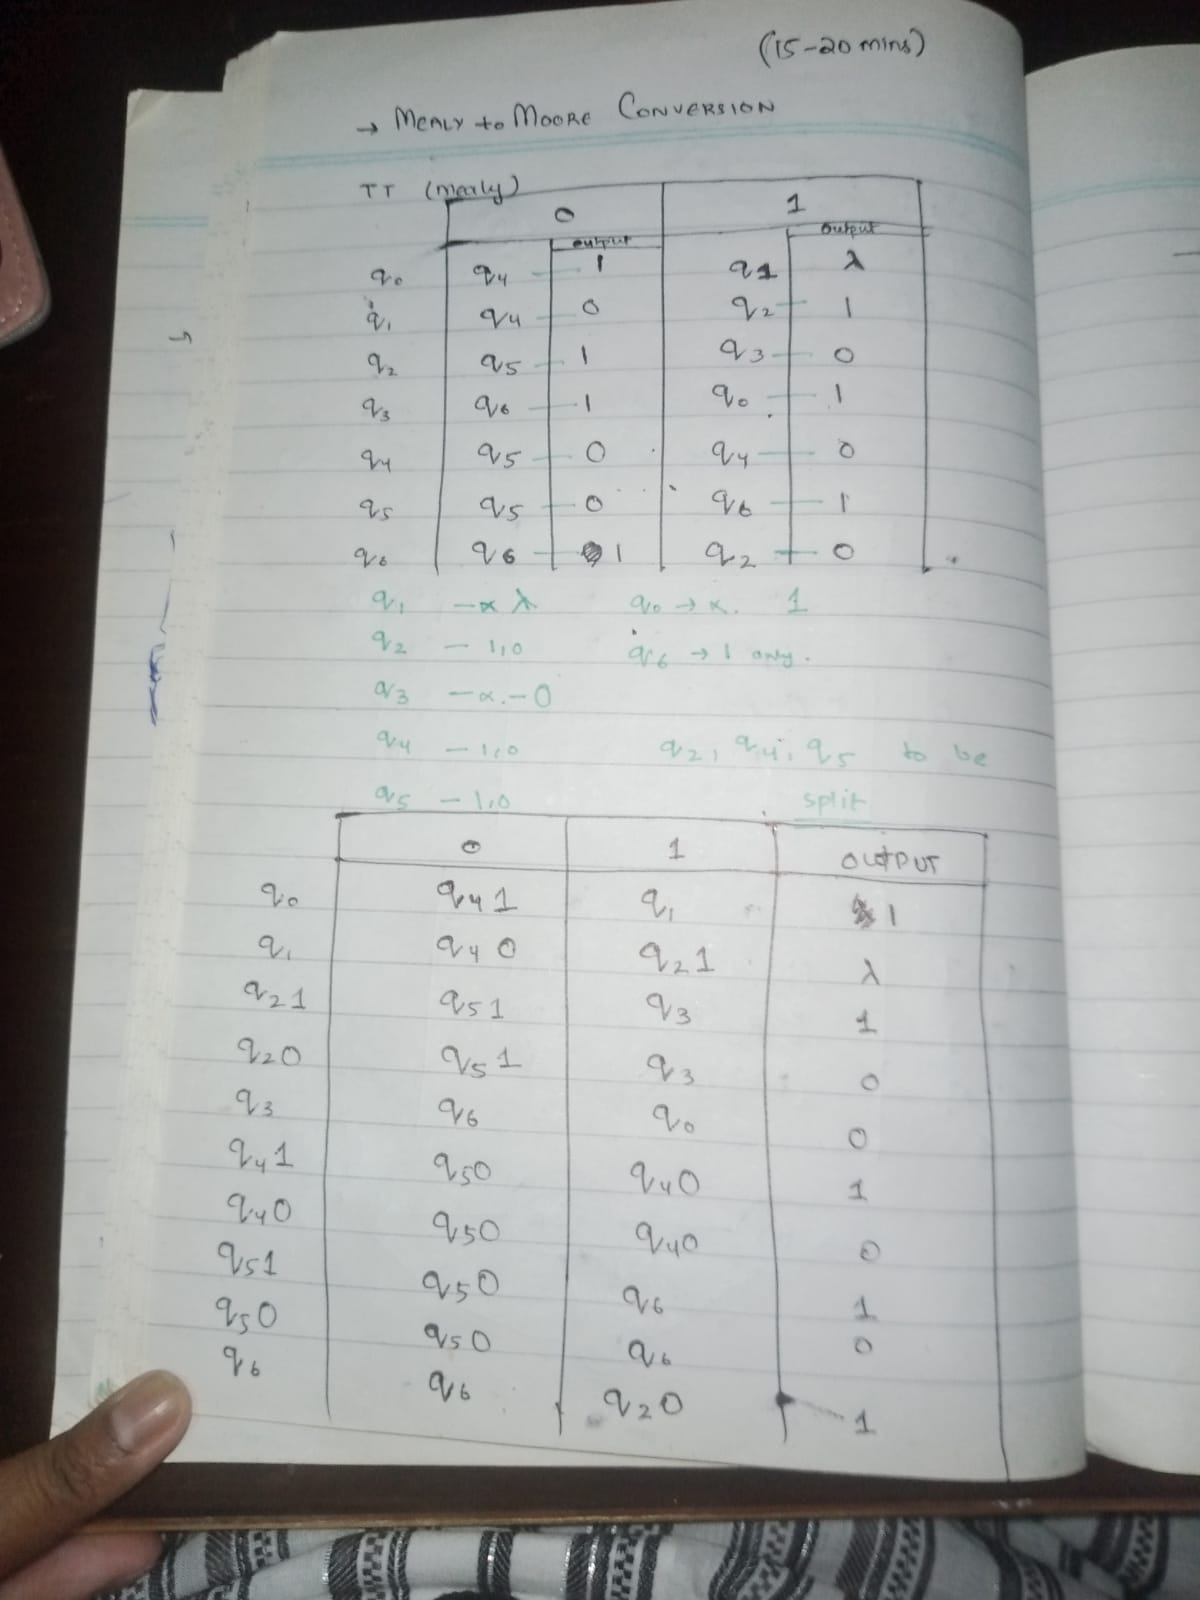 (15-20 mins)
→ MEALY to MOORE CONVERSION
TT (mealy)
0 1
output output
q0 q4 1 q1 λ
q1 q4 0 q2 1
q2 q5 1 q3 0
q3 q6 1 q0 1
q4 q5 0 q4 0
q5 q5 0 q6 1
q6 q6 1 q2 0
q1 - x λ q0 → x. 1
q2 - 1,0 q6 → 1 only.
q3 - x. - 0
q4 - 1,0 q2, q4, q5 to be
q5 - 1,0 split
0 1 OUTPUT
q0 q41 q1 1
q1 q40 q21 λ
q21 q51 q3 1
q20 q51 q3 0
q3 q6 q0 0
q41 q50 q40 1
q40 q50 q40 0
q51 q50 q6 1
q50 q50 q6 0
q6 q6 q20 1